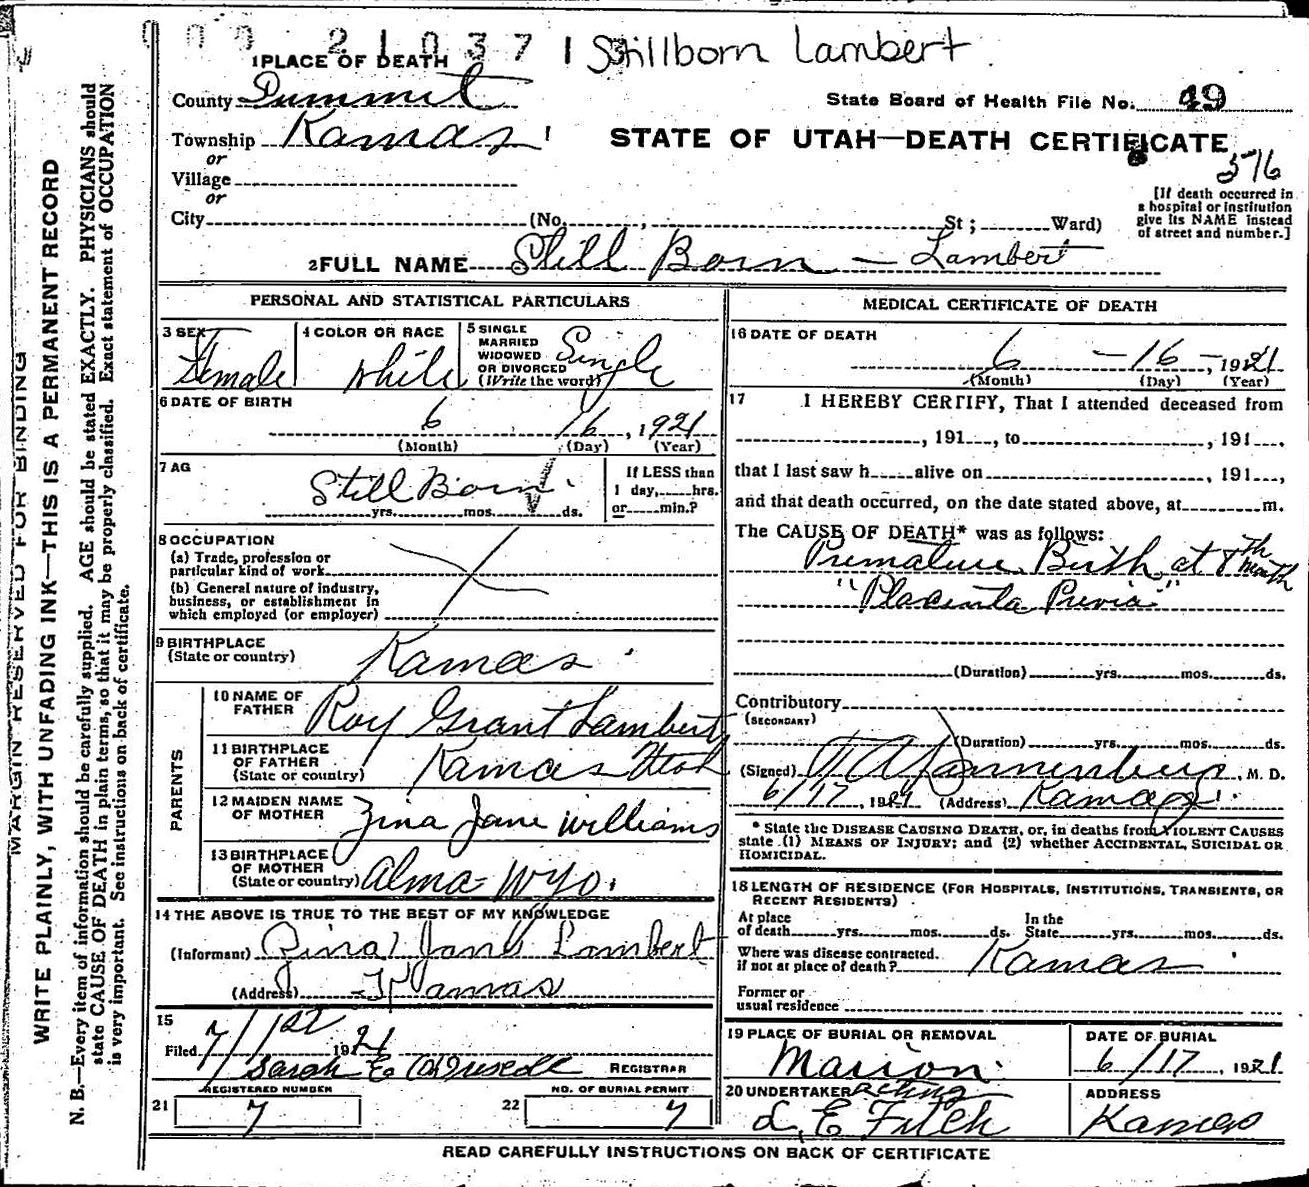 000 21037 1 Stillborn Lambert
1 PLACE OF DEATH
County Summit
State Board of Health File No. 49
Township Kamas
STATE OF UTAH—DEATH CERTIFICATE
576
or
Village
or
City (No. , St; Ward)
[If death occurred in
a hospital or institution
give its NAME instead
of street and number.]
2 FULL NAME Still Born — Lambert
PERSONAL AND STATISTICAL PARTICULARS
3 SEX
Female
4 COLOR OR RACE
White
5 SINGLE
MARRIED
WIDOWED
OR DIVORCED
(Write the word)
Single
6 DATE OF BIRTH
6 16, 1921
(Month) (Day) (Year)
7 AG
Still Born
yrs. mos. ds.
If LESS than
1 day, hrs.
or min.?
8 OCCUPATION
(a) Trade, profession or
particular kind of work
(b) General nature of industry,
business, or establishment in
which employed (or employer)
9 BIRTHPLACE
(State or country) Kamas
PARENTS
10 NAME OF
FATHER Roy Grant Lambert
11 BIRTHPLACE
OF FATHER
(State or country) Kamas Utah
12 MAIDEN NAME
OF MOTHER Zina Jane Williams
13 BIRTHPLACE
OF MOTHER
(State or country) Alma - Wyo.
14 THE ABOVE IS TRUE TO THE BEST OF MY KNOWLEDGE
(Informant) Zina Jane Lambert
(Address) Kamas
15
Filed 7/1st 1921
Sarah E REGISTRAR
REGISTERED NUMBER
21 7
NO. OF BURIAL PERMIT
22 7
MEDICAL CERTIFICATE OF DEATH
16 DATE OF DEATH
6 - 16 -, 1921
(Month) (Day) (Year)
17 I HEREBY CERTIFY, That I attended deceased from
, 191 , to , 191 ,
that I last saw h alive on , 191 ,
and that death occurred, on the date stated above, at m.
The CAUSE OF DEATH* was as follows:
Premature Birth at 8th month
"Placenta Previa"
(Duration) yrs. mos. ds.
Contributory
(SECONDARY)
(Duration) yrs. mos. ds.
(Signed) , M. D.
6/17, 1921 (Address) Kamas
* State the DISEASE CAUSING DEATH, or, in deaths from VIOLENT CAUSES
state (1) MEANS OF INJURY; and (2) whether ACCIDENTAL, SUICIDAL OR
HOMICIDAL.
18 LENGTH OF RESIDENCE (FOR HOSPITALS, INSTITUTIONS, TRANSIENTS, OR
RECENT RESIDENTS)
At place
of death yrs. mos. ds.
In the
State yrs. mos. ds.
Where was disease contracted,
if not at place of death? Kamas
Former or
usual residence
19 PLACE OF BURIAL OR REMOVAL
Marion
DATE OF BURIAL
6/17, 1921
20 UNDERTAKER Acting
L. E Fitch
ADDRESS
Kamas
READ CAREFULLY INSTRUCTIONS ON BACK OF CERTIFICATE
MARGIN RESERVED FOR BINDING
WRITE PLAINLY, WITH UNFADING INK—THIS IS A PERMANENT RECORD
N. B.—Every item of information should be carefully supplied. AGE should be stated EXACTLY. PHYSICIANS should
state CAUSE OF DEATH in plain terms, so that it may be properly classified. Exact statement of OCCUPATION
is very important. See instructions on back of certificate.